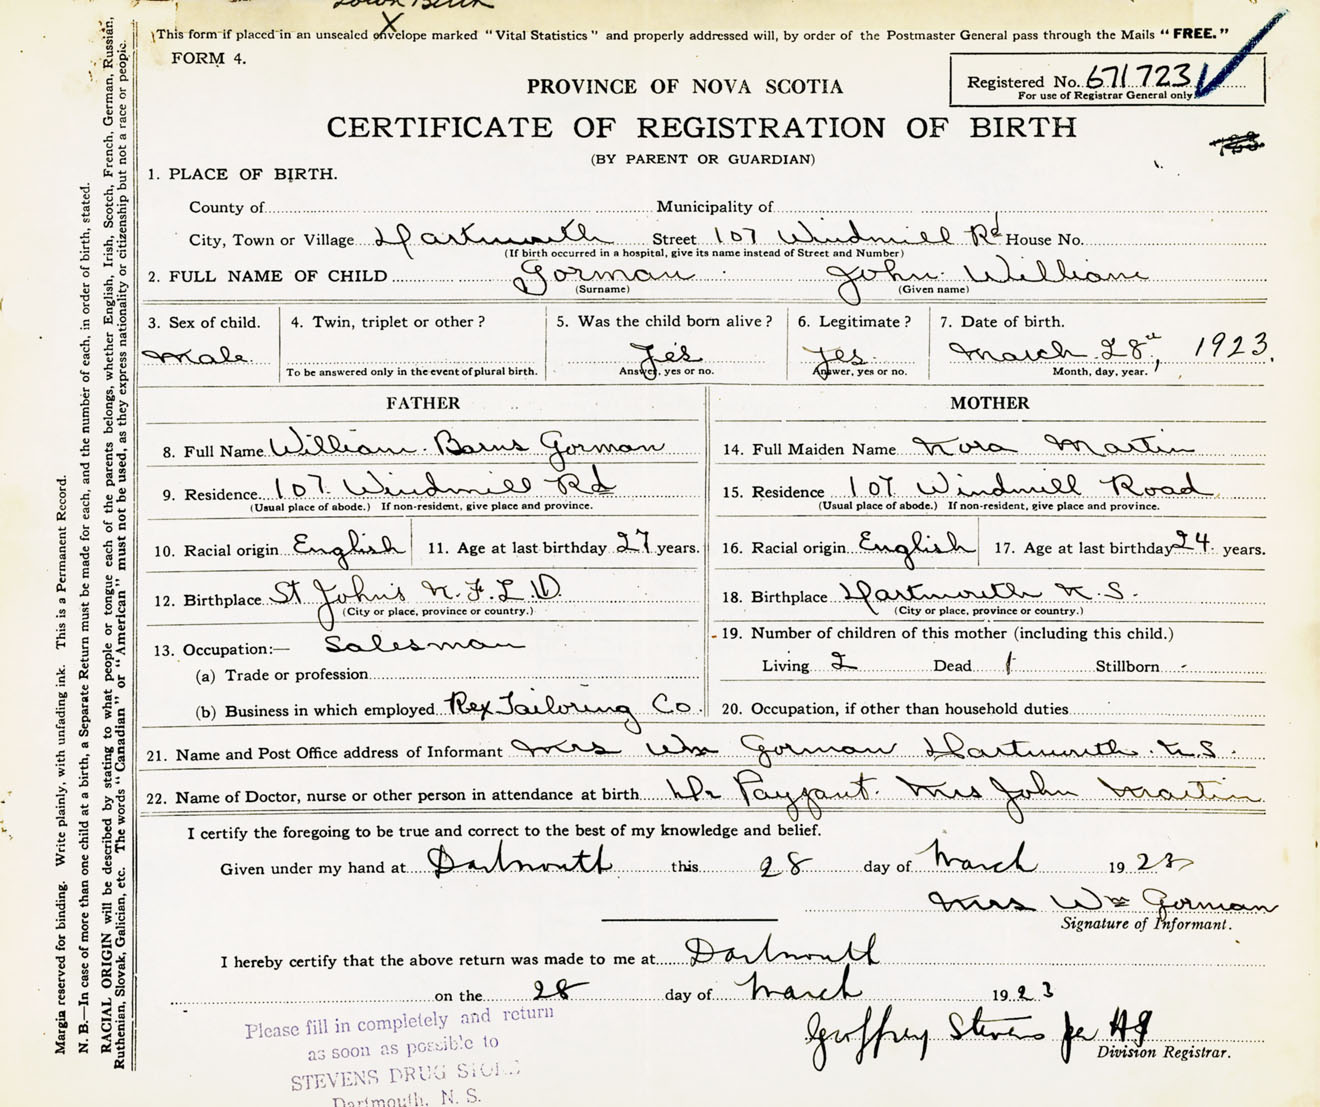 Town Birth
X
This form if placed in an unsealed envelope marked "Vital Statistics" and properly addressed will, by order of the Postmaster General pass through the Mails "FREE."
FORM 4.
Registered No. 671723
For use of Registrar General only.
PROVINCE OF NOVA SCOTIA
CERTIFICATE OF REGISTRATION OF BIRTH
(BY PARENT OR GUARDIAN)
1. PLACE OF BIRTH.
County of Municipality of
City, Town or Village Dartmouth Street 107 Windmill Rd House No.
(If birth occurred in a hospital, give its name instead of Street and Number)
2. FULL NAME OF CHILD Gorman John William
(Surname) (Given name)
3. Sex of child. 4. Twin, triplet or other? 5. Was the child born alive? 6. Legitimate? 7. Date of birth.
Male Yes Yes March 28th, 1923.
To be answered only in the event of plural birth. Answer, yes or no. Answer, yes or no. Month, day, year.
FATHER MOTHER
8. Full Name William Barns Gorman 14. Full Maiden Name Nora Martin
9. Residence 107 Windmill Rd 15. Residence 107 Windmill Road
(Usual place of abode.) If non-resident, give place and province. (Usual place of abode.) If non-resident, give place and province.
10. Racial origin English 11. Age at last birthday 27 years. 16. Racial origin English 17. Age at last birthday 24 years.
12. Birthplace St John's N.F.L.D. 18. Birthplace Dartmouth N.S.
(City or place, province or country.) (City or place, province or country.)
13. Occupation:— Salesman 19. Number of children of this mother (including this child.)
(a) Trade or profession Living 2 Dead 1 Stillborn -
(b) Business in which employed Rex Tailoring Co. 20. Occupation, if other than household duties
21. Name and Post Office address of Informant Mrs Wm Gorman Dartmouth N.S.
22. Name of Doctor, nurse or other person in attendance at birth Dr Payzant. Mrs John Martin
I certify the foregoing to be true and correct to the best of my knowledge and belief.
Given under my hand at Dartmouth this 28 day of March 1923
Mrs Wm Gorman
Signature of Informant.
I hereby certify that the above return was made to me at Dartmouth
on the 28 day of March 1923
Geoffrey Stevens
Division Registrar.
Please fill in completely and return
as soon as possible to
STEVENS DRUG STORE
Dartmouth, N. S.
Margin reserved for binding. Write plainly, with unfading ink. This is a Permanent Record.
N. B.—In case of more than one child at a birth, a Separate Return must be made for each, and the number of each, in order of birth, stated.
RACIAL ORIGIN will be described by stating to what people or tongue each of the parents belongs, whether English, Irish, Scotch, French, German, Russian,
Ruthenian, Slovak, Galician, etc. The words "Canadian" or "American" must not be used, as they express nationality or citizenship but not a race or people.